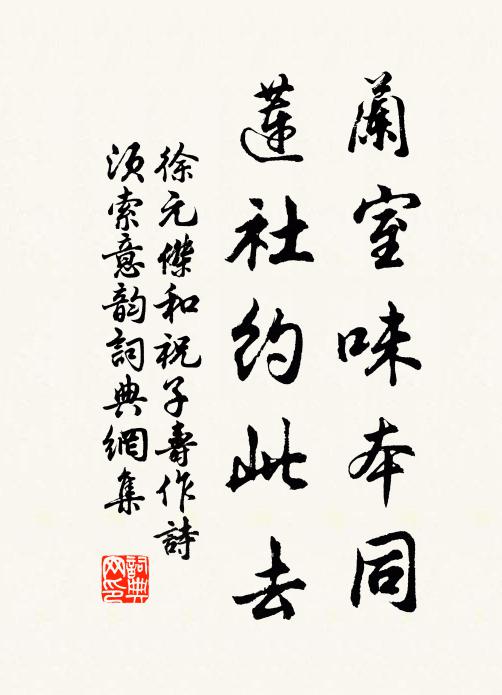 蘭室味本同
蓮社約此去
徐元傑和祝子壽作詩
須索意韵詞典網集
詞典网印